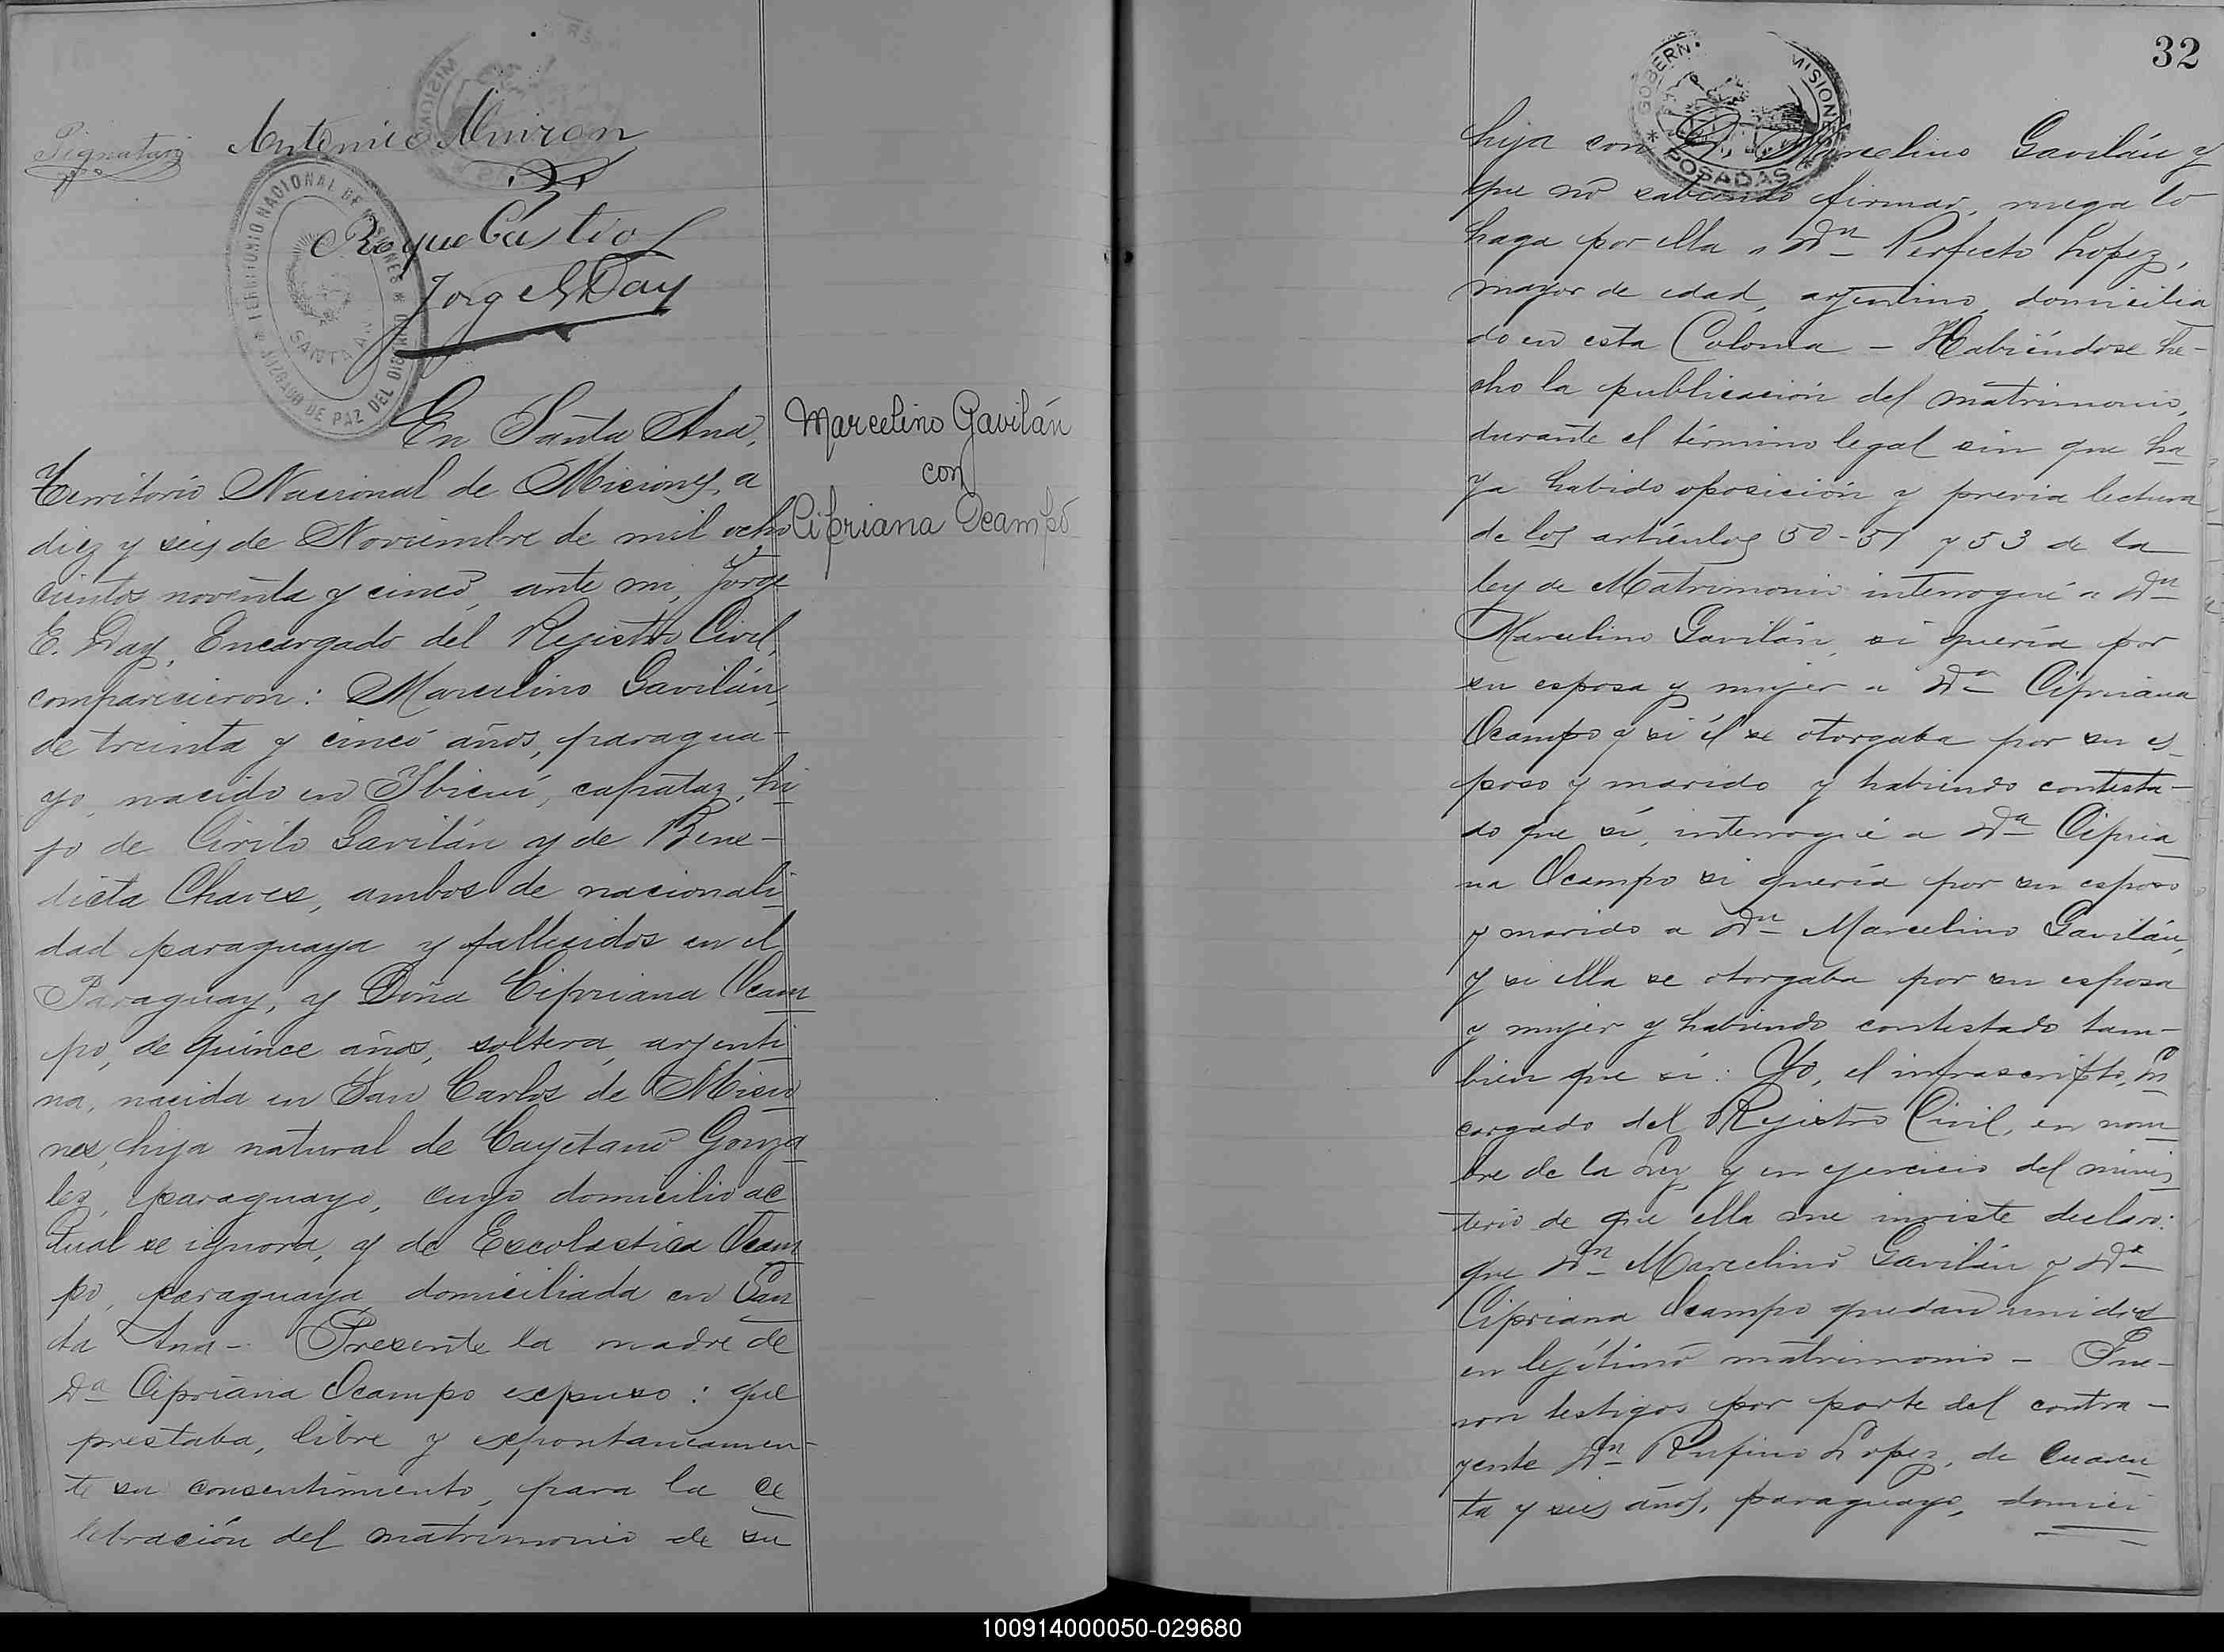 Antonio Muiron
Roque Castro
Jorge E Day
TERRITORIO NACIONAL DE MISIONES
SANTA ANA
JUZGADO DE PAZ DEL DISTRITO
En Santa Ana,
Territorio Nacional de Misiones, a
diez y seis de Noviembre de mil ocho
cientos noventa y cinco, ante mi, Jorge
E. Day, Encargado del Rejistro Civil,
comparecieron: Marcelino Gavilán,
de treinta y cinco años, paragua-
yo, nacido en Ibicuí, capataz, hi
jo de Cirilo Gavilán y de Bene-
dicta Chaves, ambos de nacionali
dad paraguaya y fallecidos en el
Paraguay, y Doña Cipriana Ocam
po, de quince años, soltera, arjenti
na, nacida en San Carlos de Misio
nes, hija natural de Cayetano Gonza
lez, paraguayo, cuyo domicilio ac
tual se ignora, y de Escolastica Ocam
po, paraguaya domiciliada en San
ta Ana - Presente la madre de
Da Cipriana Ocampo espuso: que
prestaba, libre y espontaneamen-
te su consentimiento, para la ce
lebración del matrimonio de su
Marcelino Gavilán
con
Cipriana Ocampo
32
GOBERN. MISIONES
* POSADAS *
hija con Dn Marcelino Gavilán y
que no sabiendo firmar, ruega lo
haga por ella a Dn Perfecto Lopez,
mayor de edad, arjentino, domicilia
do en esta Colonia - Habiéndose he-
cho la publicación del matrimonio,
durante el término legal sin que ha
ya habido oposición y previa lectura
de los artículos 50-51 y 53 de la
ley de Matrimonio interrogué a Dn
Marcelino Gavilán, si quería por
su esposa y mujer a Da Cipriana
Ocampo y si él se otorgaba por su es-
poso y marido y habiendo contesta-
do que sí, interrogué a Da Cipria
na Ocampo si quería por su esposo
y marido a Dn Marcelino Gavilán,
y si ella se otorgaba por su esposa
y mujer y habiendo contestado tam-
bien que sí: Yo, el infrascripto, En
cargado del Rejistro Civil, en nom
bre de la Ley y en ejercicio del minis
terio de que ella me inviste declaro:
que Dn Marcelino Gavilán y Da
Cipriana Ocampo quedan unidos
en lejítimo matrimonio - Fue-
ron testigos por parte del contra-
yente Dn Rufino Lopez, de cuaren
ta y seis años, paraguayo, domici
100914000050-029680